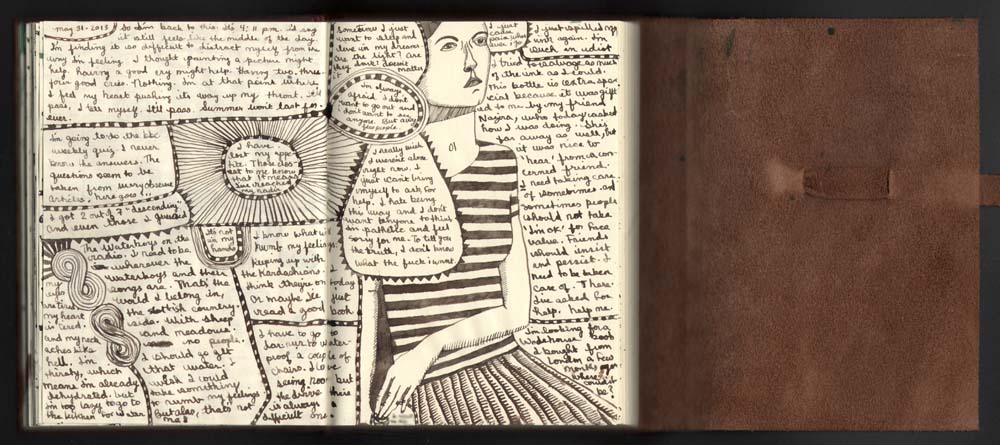 may 31 - 2013
So I'm back to this. It's 4:11 pm. I'd say
it still feels like the middle of the day.
I'm finding it so difficult to distract myself from the
way I'm feeling. I thought painting a picture might
help. having a good cry might help. Having two. three.
four good cries. Nothing. I'm at that point where
I feel my heart pushing its way up my throat. It'll
pass, I tell myself. It'll pass. Summer won't last for-
ever.
I'm going to do the bbc
weekly quiz. I never
know the answers. The
questions seem to be
taken from very obscure
articles. here goes!
I got 2 out of 7 "descending"
and even those I guessed
I have
lost my appe-
tite. Those clos-
est to me know
that it means
I've reached
my nadir
The Waterboys on the
radio. I need to be
wherever the
waterboys and their
songs are. That's the
world I belong in,
the scottish country-
side. With sheep
and meadows.
no people.
my
eyes
are tired
my heart
is tired.
and my neck
aches like
hell. I'm
thirsty, which
means I'm already
dehydrated. but
I'm too lazy to go to
the kitchen for water
I should go get
that water.
I wish I could
take something
to numb my feelings
But alas, that's not
me
It's not
in my
hands
I know what will
numb my feelings.
Keeping up with
the Kardashians.
I think they're on today
Or maybe I'll just
read a good book
I have to go to
water-
proof a couple of
chairs. I love
seeing but
the drive there
is always
difficult one.
Sometimes I just
want to sleep and
live in my dreams
are they light? are
they dark? doesn't
matter
I'm always
afraid. I don't
want to go out and
don't want to see
anyone. But a very
few people.
I really wish
I weren't alone
right now. I
just can't bring
myself to ask for
help. I hate being
this way and I don't
want anyone to think
I'm pathetic and feel
sorry for me. To tell you
the truth, I don't know
what the fuck is next.
I just
pain.
I just spilled my
ink again. I'm
such an idiot
I tried to salvage as much
of the ink as I could.
This bottle is extra spe-
cial because it was gift-
ed to me by my friend
Nazina, who today asked
how I was doing. She's
far away as well, but
it was nice to
'hear' from a con-
cerned friend.
I need taking care
of sometimes. and
sometimes people
should not take
'I'm OK' for face
value. Friends
should insist
and persist. I
need to be taken
care of. There.
I've asked for
help. help me.
I'm looking for a
Wodehouse book
I bought from
London a few
months ago
where
could it
be?